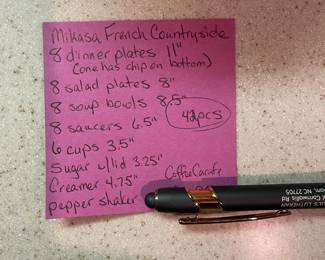 Mikasa French Countryside
8 dinner plates 11"
(one has chip on bottom)
8 salad plates 8"
8 soup bowls 8.5"
42pcs
8 saucers 6.5"
6 cups 3.5"
Sugar w/lid 3.25"
Coffee Carafe
Creamer 4.75"
pepper shaker
LUTHERAN
Cornwallis Rd
NC 27705